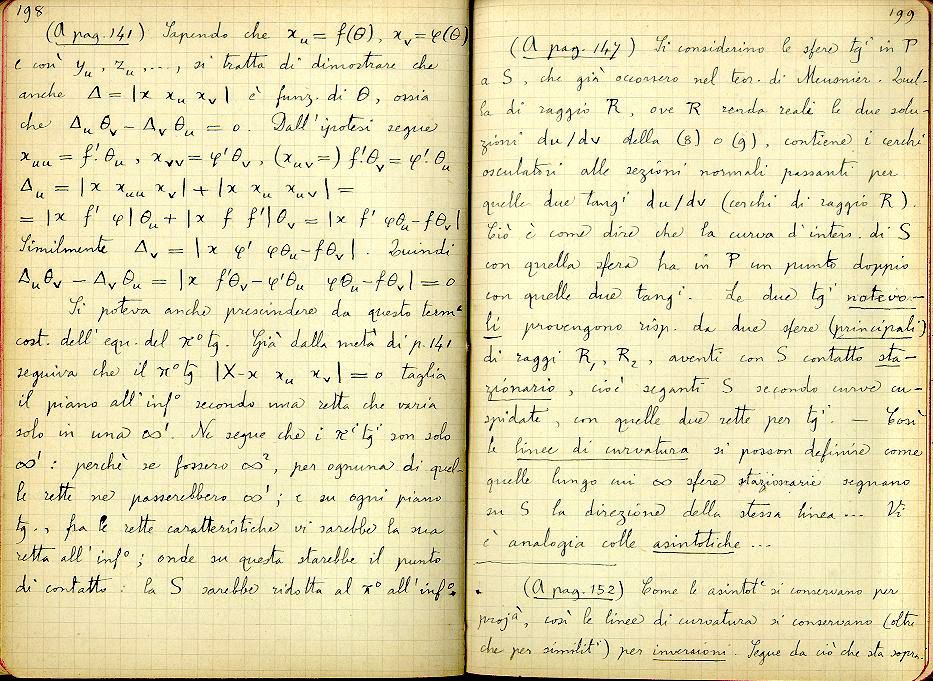 198
(A pag. 141) Sapendo che x_u = f(θ), x_v = φ(θ)
e così y_u, z_u, ..., si tratta di dimostrare che
anche Δ = |x x_u x_v| è funz. di θ, ossia
che Δ_u θ_v − Δ_v θ_u = 0. Dall'ipotesi segue
x_uu = f'. θ_u, x_vv = φ' θ_v, (x_uv =) f'. θ_v = φ'. θ_u
Δ_u = |x x_uu x_v| + |x x_u x_uv| =
= |x f' φ| θ_u + |x f f'| θ_v = |x f' φθ_u − fθ_v|
Similmente Δ_v = |x φ' φθ_u − fθ_v|. Quindi
Δ_u θ_v − Δ_v θ_u = |x f'θ_v − φ'θ_u φθ_u − fθ_v| = 0
Si poteva anche prescindere da questo term^e
cost. dell'equ. del π° tg. Già dalla metà di p. 141
seguiva che il π° tg |X−x x_u x_v| = 0 taglia
il piano all'inf° secondo una retta che varia
solo in una ∞¹. Ne segue che i π^i tg^i son solo
∞¹: perchè se fossero ∞², per ognuna di quel-
le rette ne passerebbero ∞¹; e su ogni piano
tg., fra le rette caratteristiche vi sarebbe la sua
retta all'inf°; onde su questa starebbe il punto
di contatto: la S sarebbe ridotta al π° all'inf°.
199
(A pag. 147) Si considerino le sfere tg^i in P
a S, che già occorsero nel teor. di Meusnier. Quel-
la di raggio R, ove R renda reali le due solu-
zioni du/dv della (8) o (9), contiene i cerchi
osculatori alle sezioni normali passanti per
quelle due tang^i du/dv (cerchi di raggio R).
Ciò è come dire che la curva d'inters. di S
con quella sfera ha in P un punto doppio
con quelle due tang^i. Le due tg^i notevo-
li provengono risp. da due sfere (principali)
di raggi R₁, R₂, aventi con S contatto sta-
zionario, cioè seganti S secondo curve cu-
spidate, con quelle due rette per tg^i. — Così
le linee di curvatura si posson definire come
quelle lungo cui ∞ sfere stazionarie segnano
su S la direzione della stessa linea ... Vi
è analogia colle asintotiche ...
(A pag. 152) Come le asintot^e si conservano per
proj^à, così le linee di curvatura si conservano (oltre
che per similit^i) per inversioni. Segue da ciò che sta sopra.